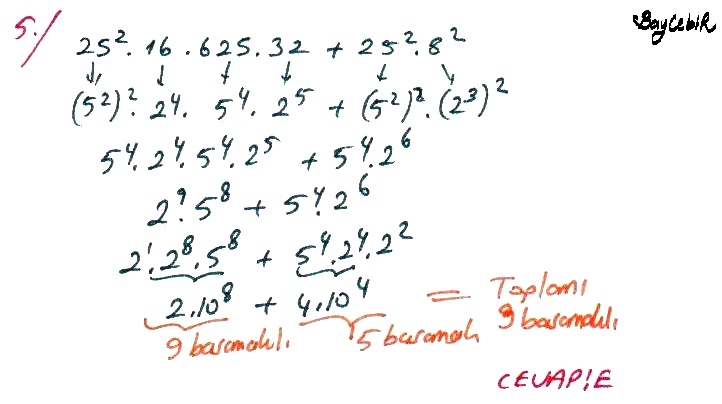 BayCebiR
5./ 25². 16 . 625. 32 + 25². 8²
(5²)². 2⁴. 5⁴. 2⁵ + (5²)². (2³)²
5⁴. 2⁴. 5⁴. 2⁵ + 5⁴. 2⁶
2⁹. 5⁸ + 5⁴. 2⁶
2¹. 2⁸. 5⁸ + 5⁴. 2⁴. 2²
2.10⁸ + 4.10⁴ = Toplamı
9 basamaklı. 5 basamaklı 9 basamaklı
CEVAP!E